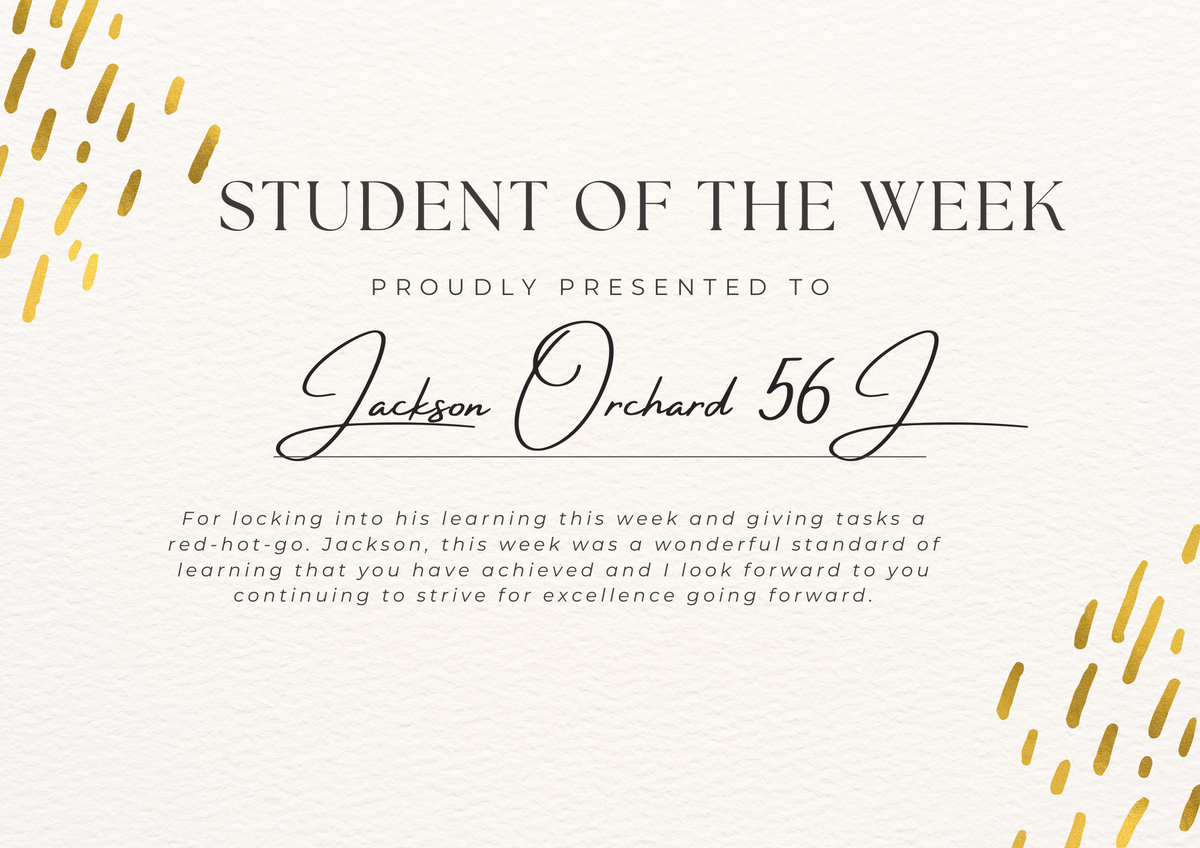 STUDENT OF THE WEEK
PROUDLY PRESENTED TO
Jackson Orchard 56 J
For locking into his learning this week and giving tasks a
red-hot-go. Jackson, this week was a wonderful standard of
learning that you have achieved and I look forward to you
continuing to strive for excellence going forward.